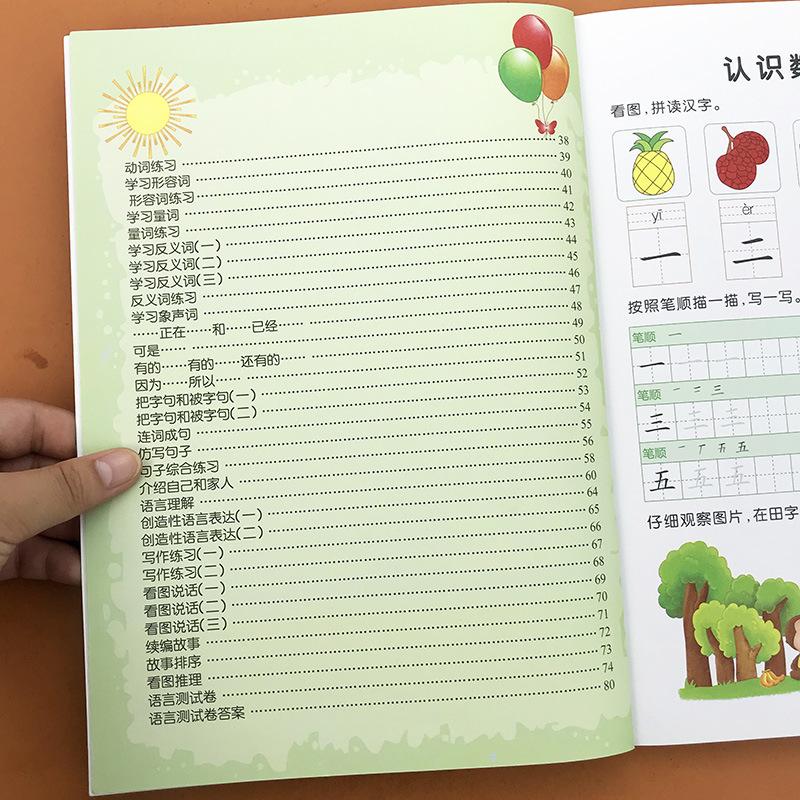 动词练习 38
学习形容词 39
形容词练习 40
学习量词 41
量词练习 42
学习反义词(一) 43
学习反义词(二) 44
学习反义词(三) 45
反义词练习 46
学习象声词 47
……正在……和……已经…… 48
可是…… 49
有的……有的……还有的…… 50
因为……所以…… 51
把字句和被字句(一) 52
把字句和被字句(二) 53
连词成句 54
仿写句子 55
句子综合练习 56
介绍自己和家人 58
语言理解 60
创造性语言表达(一) 64
创造性语言表达(二) 65
写作练习(一) 66
写作练习(二) 67
看图说话(一) 68
看图说话(二) 69
看图说话(三) 70
续编故事 71
故事排序 72
看图推理 73
语言测试卷 74
语言测试卷答案 80
认识数
看图,拼读汉字。
yī èr
一 二
按照笔顺描一描,写一写。
笔顺 一
一
笔顺 一 二 三
三 三 三
笔顺 一 丅 五 五
五 五 五
仔细观察图片,在田字